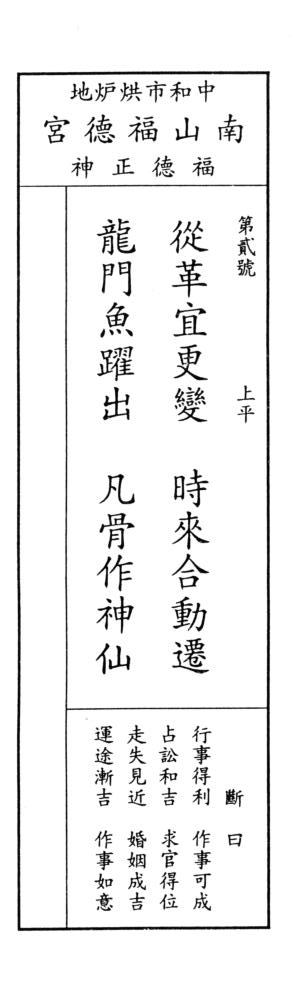 中和市烘炉地
南山福德宮
福德正神
第貳號 上平
從革宜更變 時來合動遷
龍門魚躍出 凡骨作神仙
斷曰
行事得利 作事可成
占訟和吉 求官得位
走失見近 婚姻成吉
運途漸吉 作事如意